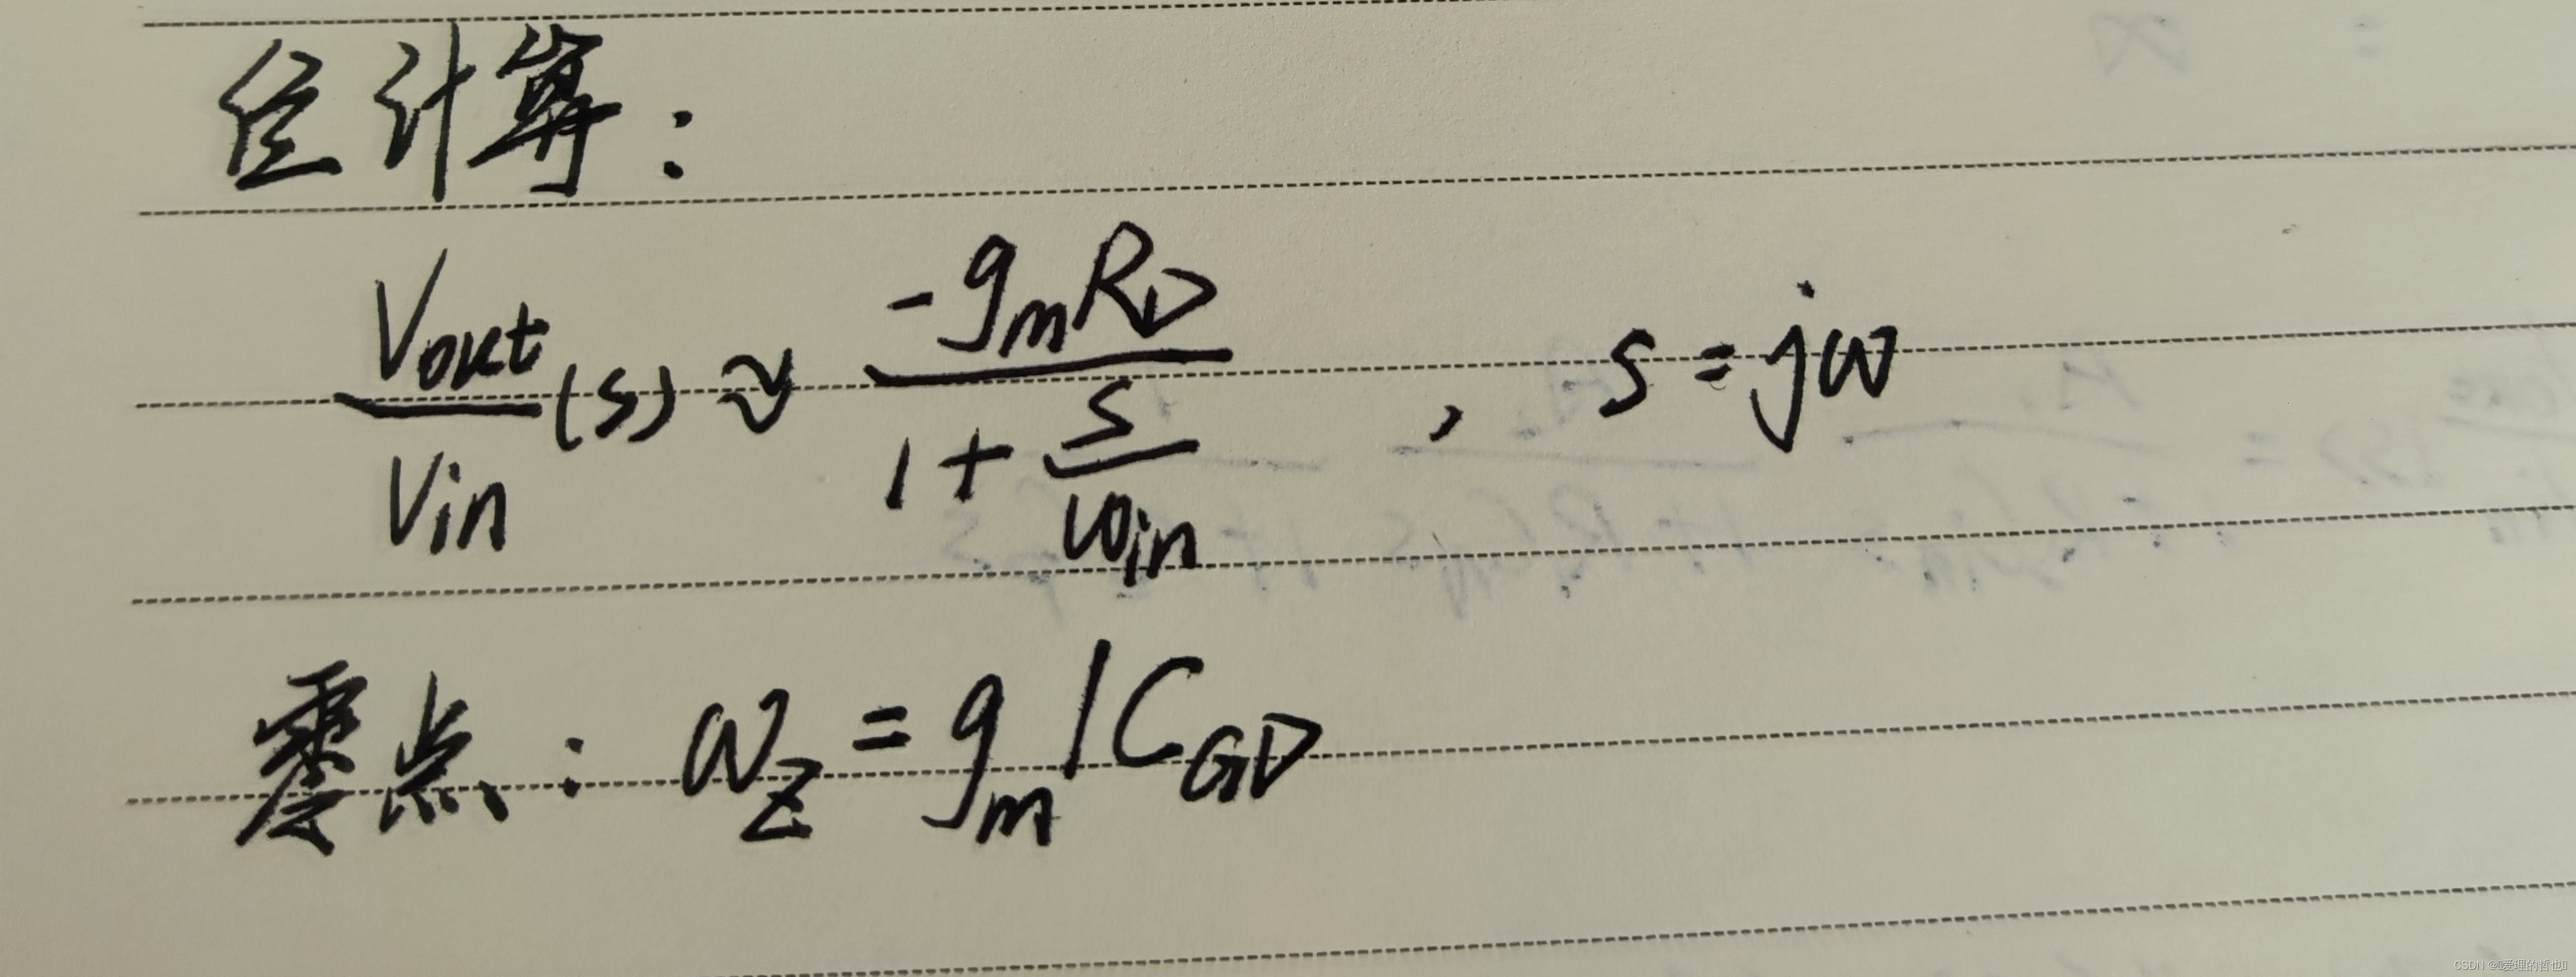 位计算：
Vout/Vin (s) ≈ -gmRD / (1 + s/ωin) , s = jω
零点：ωz = gm/CGD
CSDN @爱理的哲也